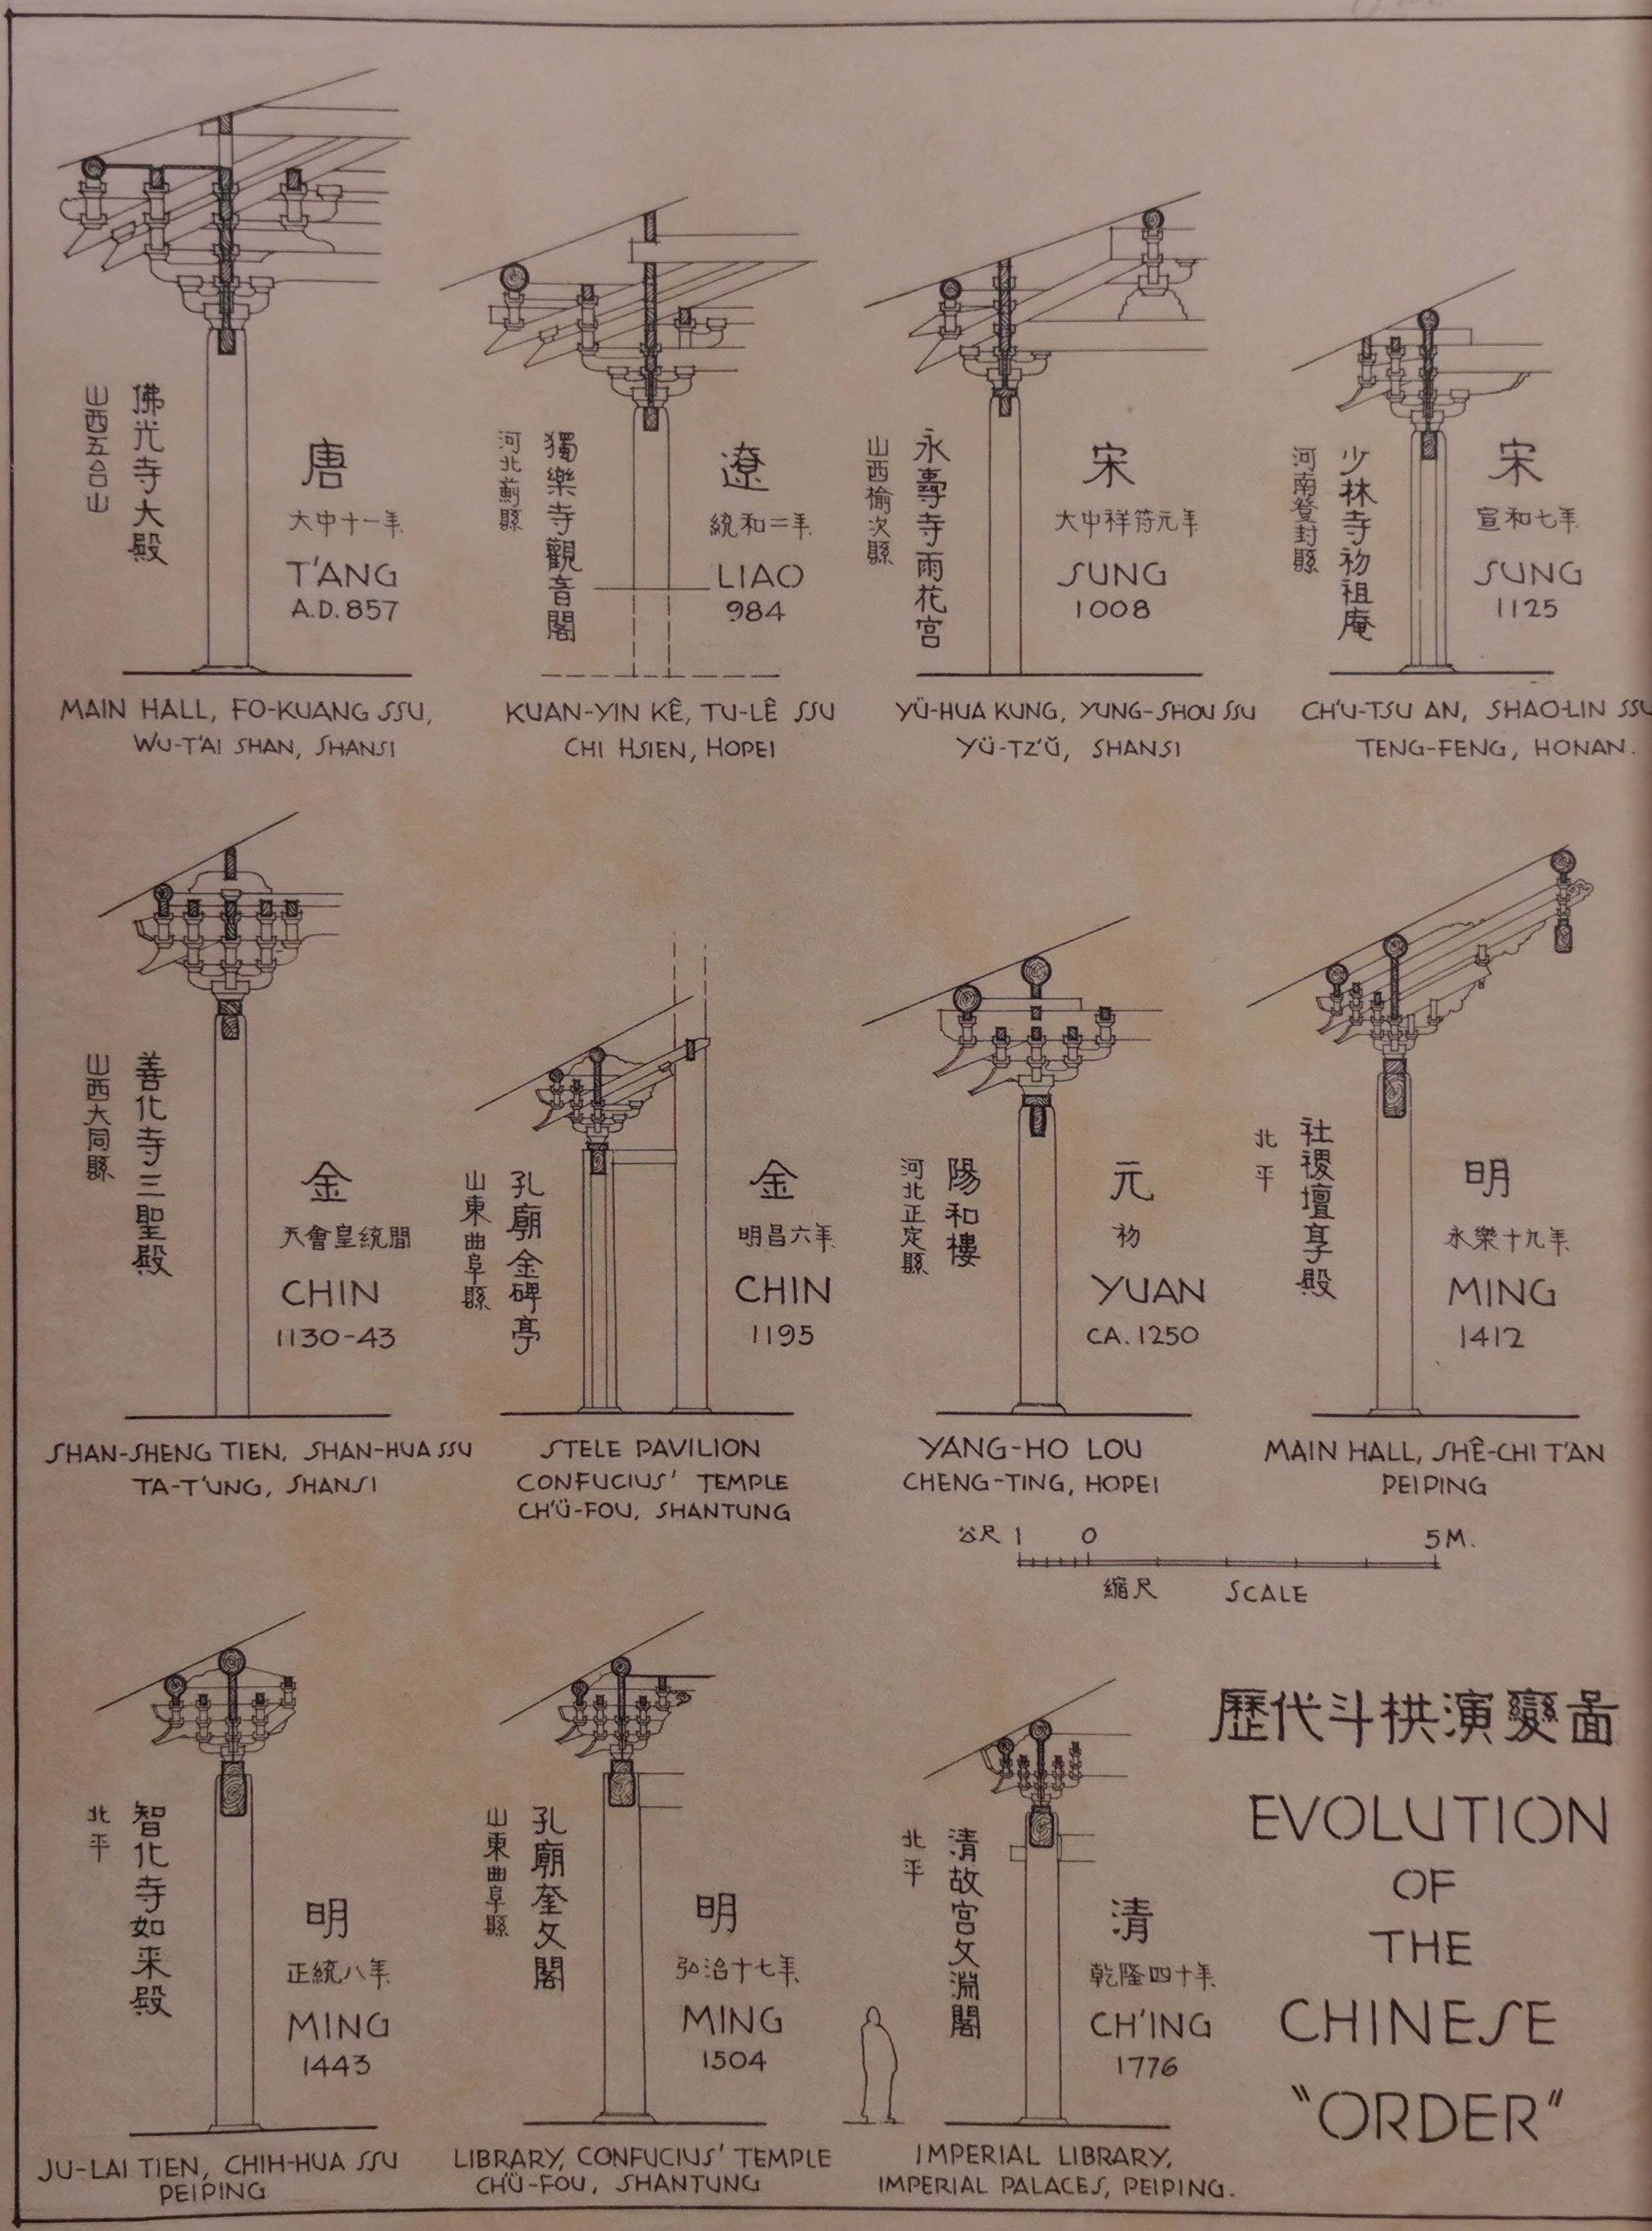 山西五台山
佛光寺大殿
唐
大中十一年
T'ANG
A.D. 857
MAIN HALL, FO-KUANG SSU,
WU-T'AI SHAN, SHANSI
河北薊縣
獨樂寺觀音閣
遼
統和二年
LIAO
984
KUAN-YIN KÊ, TU-LÊ SSU
CHI HSIEN, HOPEI
山西榆次縣
永壽寺雨花宮
宋
大中祥符元年
SUNG
1008
YÜ-HUA KUNG, YUNG-SHOU SSU
YÜ-TZ'Ŭ, SHANSI
河南登封縣
少林寺初祖庵
宋
宣和七年
SUNG
1125
CH'U-TSU AN, SHAO-LIN SSU
TENG-FENG, HONAN.
山西大同縣
善化寺三聖殿
金
天會皇統間
CHIN
1130-43
SHAN-SHENG TIEN, SHAN-HUA SSU
TA-T'UNG, SHANSI
山東曲阜縣
孔廟金碑亭
金
明昌六年
CHIN
1195
STELE PAVILION
CONFUCIUS' TEMPLE
CH'Ü-FOU, SHANTUNG
河北正定縣
陽和樓
元
初
YUAN
CA. 1250
YANG-HO LOU
CHENG-TING, HOPEI
北平
社稷壇享殿
明
永樂十九年
MING
1412
MAIN HALL, SHÊ-CHI T'AN
PEIPING
公尺 1 0 5 M.
縮尺 SCALE
北平
智化寺如来殿
明
正統八年
MING
1443
JU-LAI TIEN, CHIH-HUA SSU
PEIPING
山東曲阜縣
孔廟奎文閣
明
弘治十七年
MING
1504
LIBRARY, CONFUCIUS' TEMPLE
CH'Ü-FOU, SHANTUNG
北平
清故宮文淵閣
清
乾隆四十年
CH'ING
1776
IMPERIAL LIBRARY,
IMPERIAL PALACES, PEIPING.
歷代斗栱演變圖
EVOLUTION
OF
THE
CHINESE
"ORDER"